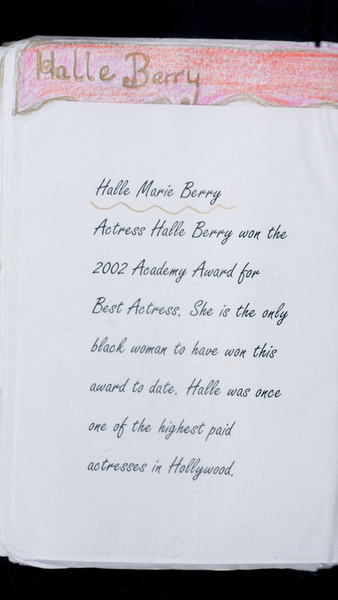 Halle Berry
Halle Marie Berry
Actress Halle Berry won the
2002 Academy Award for
Best Actress. She is the only
black woman to have won this
award to date. Halle was once
one of the highest paid
actresses in Hollywood.